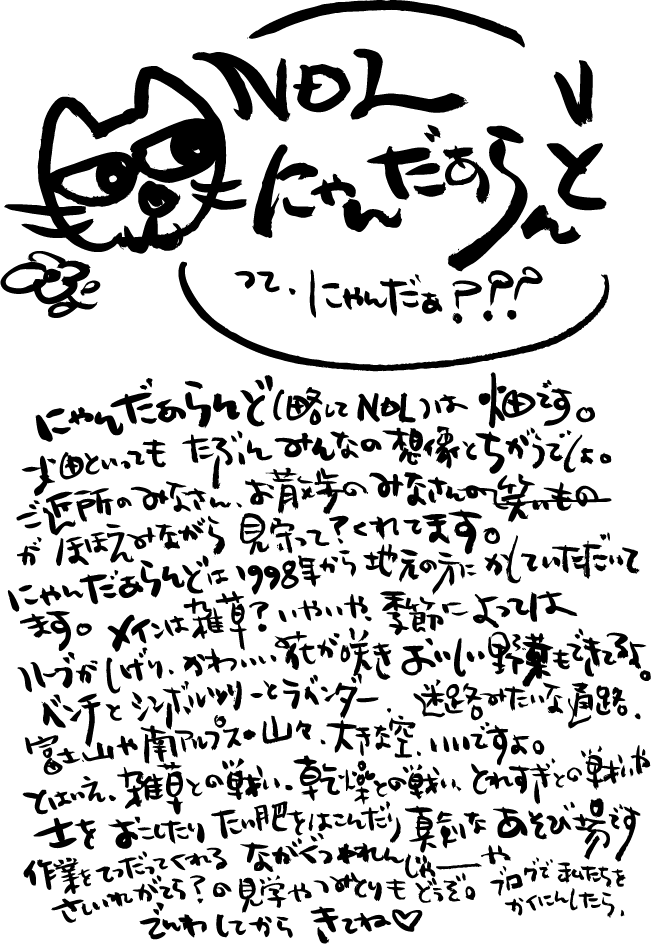 NOL
にゃんだぁらんど
って、にゃんだぁ???
にゃんだぁらんど(略してNOL)は 畑です。
畑といっても たぶん みんなの想像とちがうでしょ。
ご近所のみなさん、お散歩のみなさんの笑いもの
が ほほえみながら 見守って?くれてます。
にゃんだぁらんどは1998年から地元の方にかしていただいて
ます。メインは雑草?いやいや、季節によっては
ハーブがしげり、かわいい花が咲き おいしい野菜もできてるよ。
ベンチとシンボルツリーとラベンダー、迷路みたいな通路、
富士山や南アルプスの山々、大きな空、いいですよ。
とはいえ、雑草との戦い、乾燥との戦い、とれすぎとの戦いや
土をおこしたり たい肥をはこんだり 真剣な あそび場です
作業をてつだってくれる ながぐつれんじゃーや
さしいれがてら?の見学やつみとりもどうぞ。
ブログで私たちを
かくにんしたら、
でんわしてから きてね♡